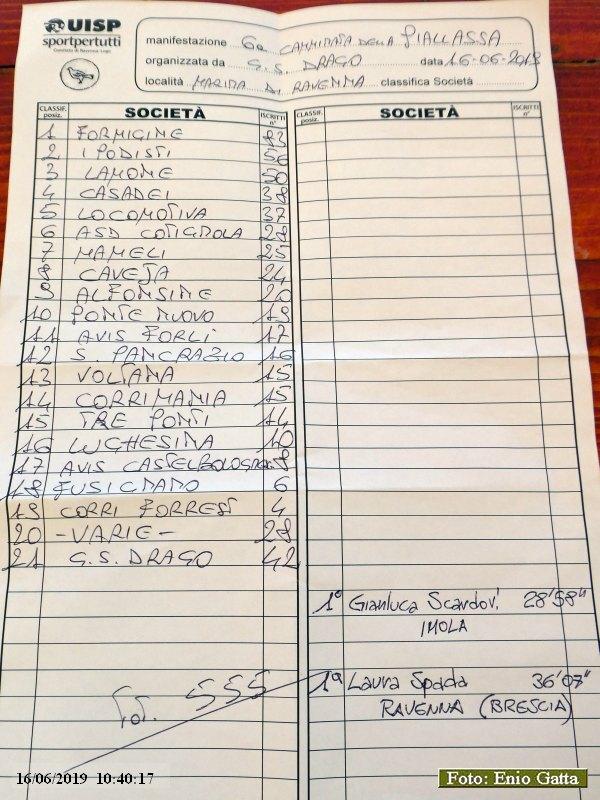 UISP
sportpertutti
Comitato di Ravenna-Lugo
manifestazione 6a CAMMINATA DELLA PIALLASSA
organizzata da G.S. DRAGO data 16-06-2019
località MARINA DI RAVENNA classifica Società
CLASSIF. posiz. SOCIETÀ ISCRITTI n° CLASSIF. posiz. SOCIETÀ ISCRITTI n°
1 FORMIGINE 83
2 I PODISTI 56
3 LAMONE 50
4 CASADEI 38
5 LOCOMOTIVA 37
6 ASD COTIGNOLA 28
7 MAMELI 25
8 CAVEJA 24
9 ALFONSINE 20
10 PONTE NUOVO 19
11 AVIS FORLI 17
12 S. PANCRAZIO 16
13 VOLTANA 15
14 CORRIMANIA 15
15 TRE PONTI 14
16 LUGHESINA 10
17 AVIS CASTELBOLOGNESE 8
18 FUSIGNANO 6
19 CORRI FORREST 4
20 - VARIE - 28
21 G.S. DRAGO 42
1° Gianluca Scardovi 28'58"
IMOLA
1ª Laura Spada 36'07"
RAVENNA (BRESCIA)
Tot. 555
16/06/2019 10:40:17
Foto: Enio Gatta